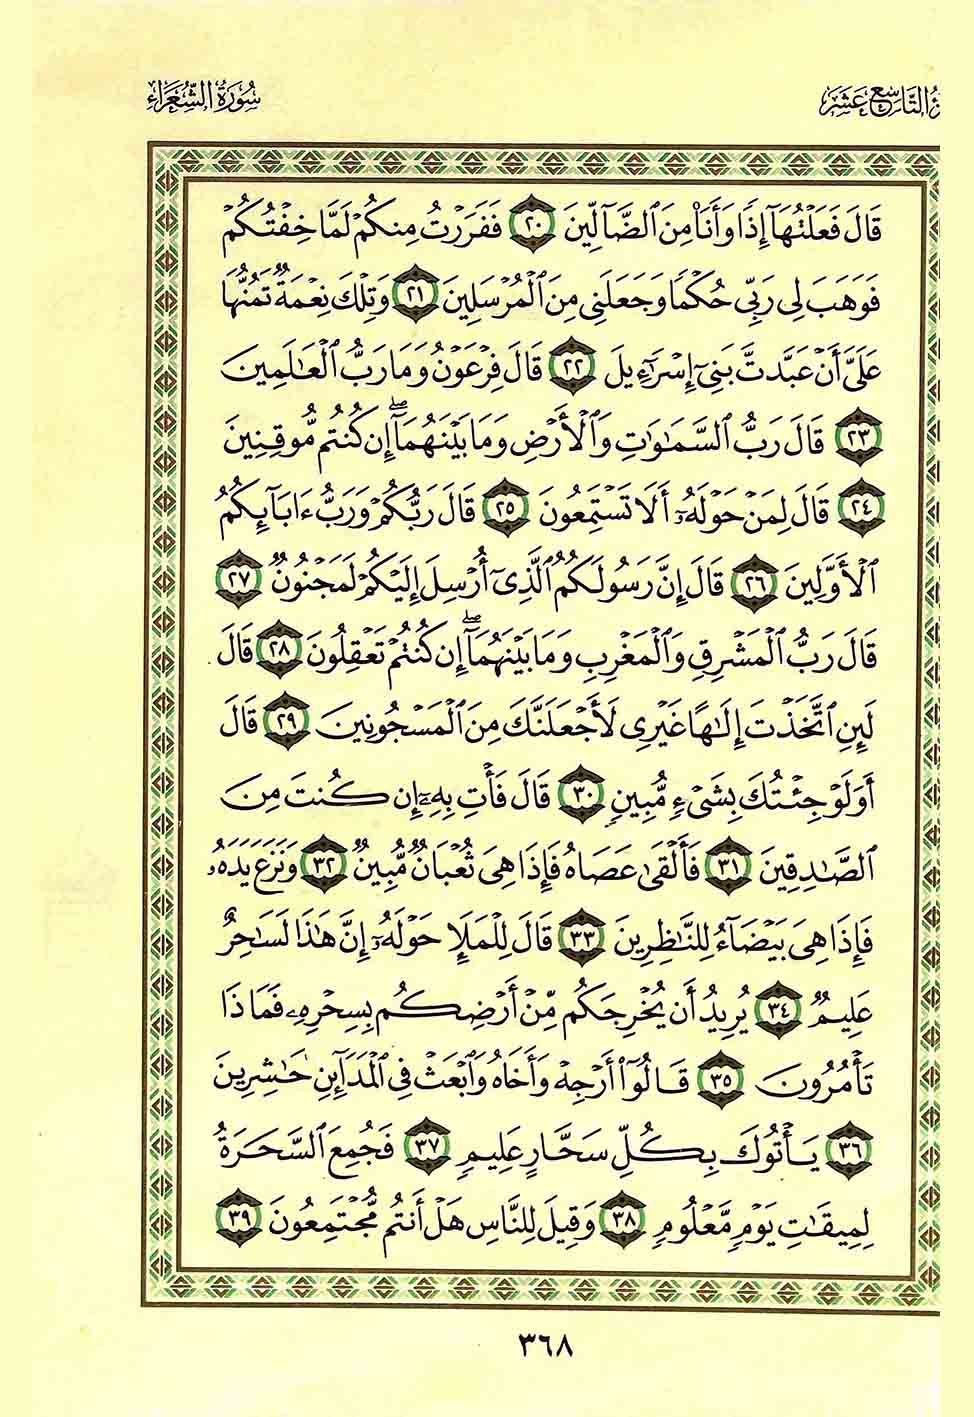 سُورَةُ الشُّعَرَاءِ
التَّاسِعَ عَشَرَ
قَالَ فَعَلْتُهَآ إِذًا وَأَنَا۠ مِنَ ٱلضَّآلِّينَ ٢٠ فَفَرَرْتُ مِنكُمْ لَمَّا خِفْتُكُمْ
فَوَهَبَ لِى رَبِّى حُكْمًا وَجَعَلَنِى مِنَ ٱلْمُرْسَلِينَ ٢١ وَتِلْكَ نِعْمَةٌ تَمُنُّهَا
عَلَىَّ أَنْ عَبَّدتَّ بَنِىٓ إِسْرَٰٓءِيلَ ٢٢ قَالَ فِرْعَوْنُ وَمَا رَبُّ ٱلْعَٰلَمِينَ
٢٣ قَالَ رَبُّ ٱلسَّمَٰوَٰتِ وَٱلْأَرْضِ وَمَا بَيْنَهُمَآ ۖ إِن كُنتُم مُّوقِنِينَ
٢٤ قَالَ لِمَنْ حَوْلَهُۥٓ أَلَا تَسْتَمِعُونَ ٢٥ قَالَ رَبُّكُمْ وَرَبُّ ءَابَآئِكُمُ
ٱلْأَوَّلِينَ ٢٦ قَالَ إِنَّ رَسُولَكُمُ ٱلَّذِىٓ أُرْسِلَ إِلَيْكُمْ لَمَجْنُونٌ ٢٧
قَالَ رَبُّ ٱلْمَشْرِقِ وَٱلْمَغْرِبِ وَمَا بَيْنَهُمَآ ۖ إِن كُنتُمْ تَعْقِلُونَ ٢٨ قَالَ
لَئِنِ ٱتَّخَذْتَ إِلَٰهًا غَيْرِى لَأَجْعَلَنَّكَ مِنَ ٱلْمَسْجُونِينَ ٢٩ قَالَ
أَوَلَوْ جِئْتُكَ بِشَىْءٍ مُّبِينٍ ٣٠ قَالَ فَأْتِ بِهِۦٓ إِن كُنتَ مِنَ
ٱلصَّٰدِقِينَ ٣١ فَأَلْقَىٰ عَصَاهُ فَإِذَا هِىَ ثُعْبَانٌ مُّبِينٌ ٣٢ وَنَزَعَ يَدَهُۥ
فَإِذَا هِىَ بَيْضَآءُ لِلنَّٰظِرِينَ ٣٣ قَالَ لِلْمَلَإِ حَوْلَهُۥٓ إِنَّ هَٰذَا لَسَٰحِرٌ
عَلِيمٌ ٣٤ يُرِيدُ أَن يُخْرِجَكُم مِّنْ أَرْضِكُم بِسِحْرِهِۦ فَمَاذَا
تَأْمُرُونَ ٣٥ قَالُوٓا۟ أَرْجِهْ وَأَخَاهُ وَٱبْعَثْ فِى ٱلْمَدَآئِنِ حَٰشِرِينَ
٣٦ يَأْتُوكَ بِكُلِّ سَحَّارٍ عَلِيمٍ ٣٧ فَجُمِعَ ٱلسَّحَرَةُ
لِمِيقَٰتِ يَوْمٍ مَّعْلُومٍ ٣٨ وَقِيلَ لِلنَّاسِ هَلْ أَنتُم مُّجْتَمِعُونَ ٣٩
٣٦٨